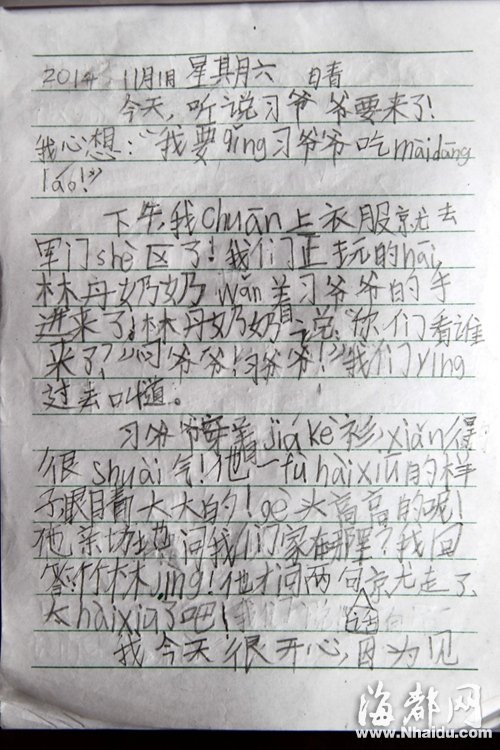 2014 11月1日 星其月六 日青
今天，听说习爷爷要来了！
我心想：“我要qǐng习爷爷吃màidāng
láo！”
下午，我chuān上衣服京尤去
军门shè区了！我们正玩的hāi，
林丹奶奶wǎn羊习爷爷的手
进来了，林丹奶奶说：“你们看谁
来了？”“习爷爷！习爷爷！”我们yíng
过去叫道。
习爷爷穿着jiákè衫，xiǎn得
很shuài气！他一fù hàixiū的样
子，眼睛大大的！gè头高高的呢！
他亲切地问我们家在哪里？我回
答：竹林jìng！他才问两句话京尤走了
太hàixiū了吧！
我今天很开心，因为见
海都网
www.Nhaidu.com